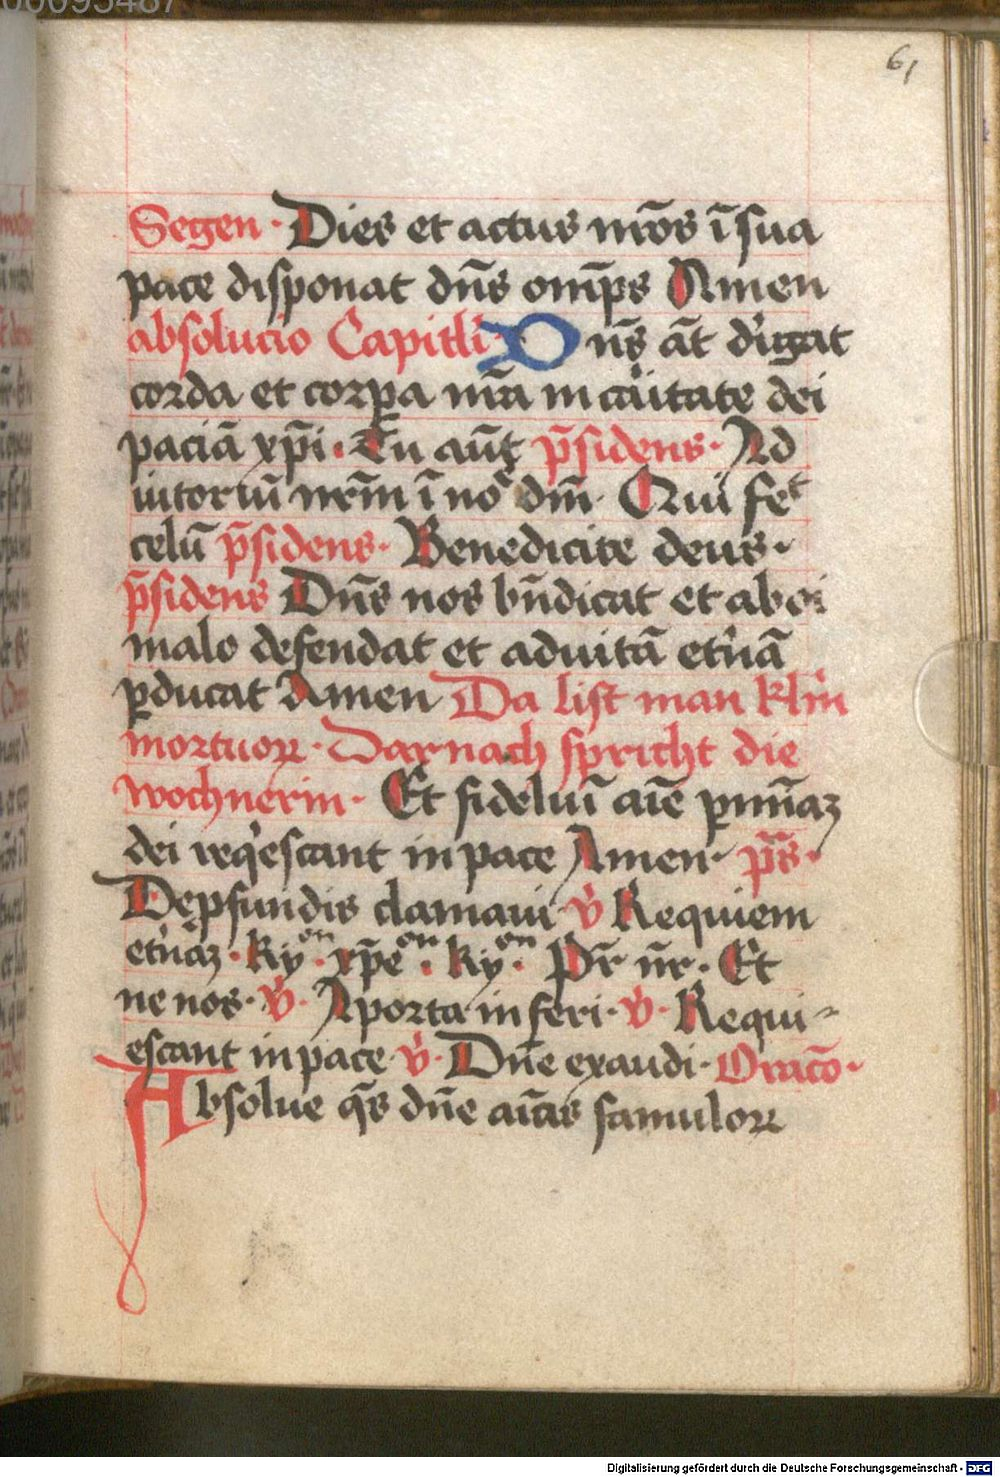 00095487
61
Segen · Dies et actus nr̄os ī sua
pace disponat dn̄s om̄ps Amen
absolucio Capitl̄i Dn̄s āt dirigat
corda et corꝑa nr̄a in caritate dei
paciā xp̄i · Tu aūt p̄sidens · Ad
iutoriū nrm̄ ī noē dm̄ · Qui fecᵗ
celū p̄sidens · Benedicite deus ·
p̄sidens Dn̄s nos bn̄dicat et aboi
malo defendat et aduitā etn̄ā
ꝑducat Amen Da list man klm̄
mortuoꝝ · Darnach spricht die
wochnerin · Et fideliū aīe ꝑ mīaꝫ
dei reqͥescant in pace Amen · ps̄ ·
De ꝓfundis clamaui v̄ Requiem
etn̄aꝫ · Kyᵒⁿ · xp̄eᵒⁿ · kyᵒⁿ · Pr̄ nr̄ · Et
ne nos · v̄ · A porta inferi · v̄ · Requi-
escant in pace · v̄ · Dn̄e exaudi · Orac̄o ·
Absolue qs̄ dn̄e aīas famuloꝝ
Digitalisierung gefördert durch die Deutsche Forschungsgemeinschaft - DFG